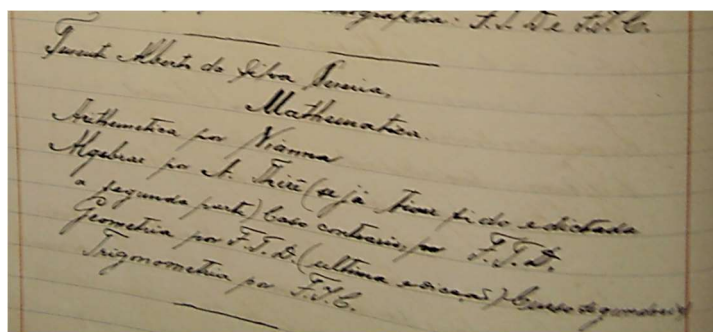 graphia: F.T.D e F.T.C.
Tenente Alberto da Silva Pereira,
Mathematica.
Arithemetica por Vianna
Algebrae por A. Thiré (se já tiver sido edictada
a segunda parte) Caso contrario, por F.T.D.
Geometria por F.T.D. (ultima edicção) Curso
Trigonometria por F.T.C.